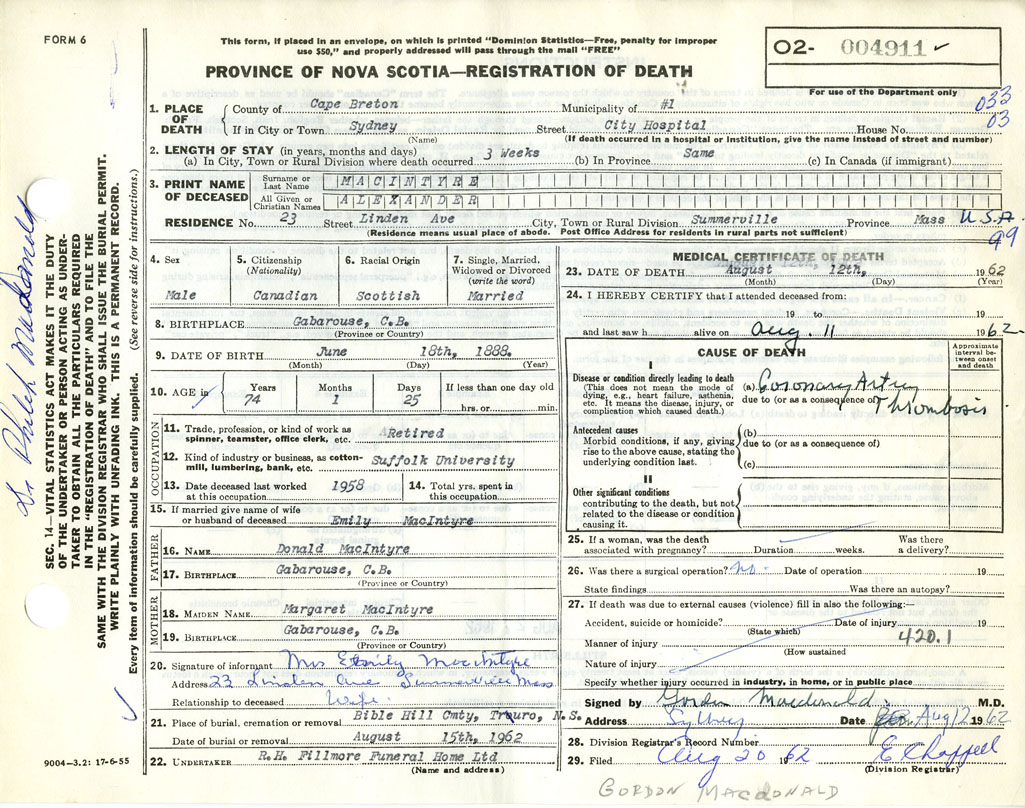 FORM 6
This form, if placed in an envelope, on which is printed "Dominion Statistics—Free, penalty for improper
use $50," and properly addressed will pass through the mail "FREE"
PROVINCE OF NOVA SCOTIA—REGISTRATION OF DEATH
02- 004911 ✓
For use of the Department only
033
03
1. PLACE OF DEATH
County of Cape Breton Municipality of #1
If in City or Town Sydney Street City Hospital House No.
(Name) (If death occurred in a hospital or institution, give the name instead of street and number)
2. LENGTH OF STAY (in years, months and days)
(a) In City, Town or Rural Division where death occurred 3 Weeks (b) In Province Same (c) In Canada (if immigrant)
3. PRINT NAME OF DECEASED
Surname or Last Name MACINTYRE
All Given or Christian Names ALEXANDER
RESIDENCE No. 23 Street Linden Ave City, Town or Rural Division Summerville Province Mass U.S.A.
99
(Residence means usual place of abode. Post Office Address for residents in rural parts not sufficient)
4. Sex Male
5. Citizenship (Nationality) Canadian
6. Racial Origin Scottish
7. Single, Married, Widowed or Divorced (write the word) Married
8. BIRTHPLACE Gabarouse, C.B.
(Province or Country)
9. DATE OF BIRTH June 18th, 1888.
(Month) (Day) (Year)
10. AGE in Years 74 Months 1 Days 25 If less than one day old hrs. or min.
OCCUPATION
11. Trade, profession, or kind of work as spinner, teamster, office clerk, etc. Retired
12. Kind of industry or business, as cotton-mill, lumbering, bank, etc. Suffolk University
13. Date deceased last worked at this occupation 1958 14. Total yrs. spent in this occupation
15. If married give name of wife or husband of deceased Emily MacIntyre
FATHER
16. NAME Donald MacIntyre
17. BIRTHPLACE Gabarouse, C.B.
(Province or Country)
MOTHER
18. MAIDEN NAME Margaret MacIntyre
19. BIRTHPLACE Gabarouse, C.B.
(Province or Country)
20. Signature of informant Mrs Emily MacIntyre
Address 23 Linden Ave Summerville Mass
Relationship to deceased Wife
21. Place of burial, cremation or removal Bible Hill Cmty, Truro, N.S.
Date of burial or removal August 15th, 1962
22. UNDERTAKER R.H. Fillmore Funeral Home Ltd
(Name and address)
MEDICAL CERTIFICATE OF DEATH
23. DATE OF DEATH August 12th, 1962
(Month) (Day) (Year)
24. I HEREBY CERTIFY that I attended deceased from:
19 to 19
and last saw h alive on Aug. 11 1962
CAUSE OF DEATH
Approximate interval between onset and death
I
Disease or condition directly leading to death
(This does not mean the mode of dying, e.g., heart failure, asthenia, etc. It means the disease, injury, or complication which caused death.)
(a) Coronary Artery Thrombosis
due to (or as a consequence of)
Antecedent causes
Morbid conditions, if any, giving rise to the above cause, stating the underlying condition last.
(b)
due to (or as a consequence of)
(c)
II
Other significant conditions
contributing to the death, but not related to the disease or condition causing it.
25. If a woman, was the death associated with pregnancy? Duration weeks. Was there a delivery?
26. Was there a surgical operation? No. Date of operation 19
State findings Was there an autopsy?
27. If death was due to external causes (violence) fill in also the following:—
Accident, suicide or homicide? Date of injury 19
(State which)
420.1
Manner of injury
(How sustained
Nature of injury
Specify whether injury occurred in industry, in home, or in public place
Signed by Gordon Macdonald M.D.
Address Sydney Date Aug 12 1962
28. Division Registrar's Record Number
29. Filed Aug 20 1962 E Chappell
(Division Registrar)
GORDON MACDONALD
SEC. 14—VITAL STATISTICS ACT MAKES IT THE DUTY
OF THE UNDERTAKER OR PERSON ACTING AS UNDER-
TAKER TO OBTAIN ALL THE PARTICULARS REQUIRED
IN THE "REGISTRATION OF DEATH" AND TO FILE THE
SAME WITH THE DIVISION REGISTRAR WHO SHALL ISSUE THE BURIAL PERMIT.
WRITE PLAINLY WITH UNFADING INK. THIS IS A PERMANENT RECORD.
Every item of information should be carefully supplied. (See reverse side for instructions.)
9004—3.2: 17-6-55